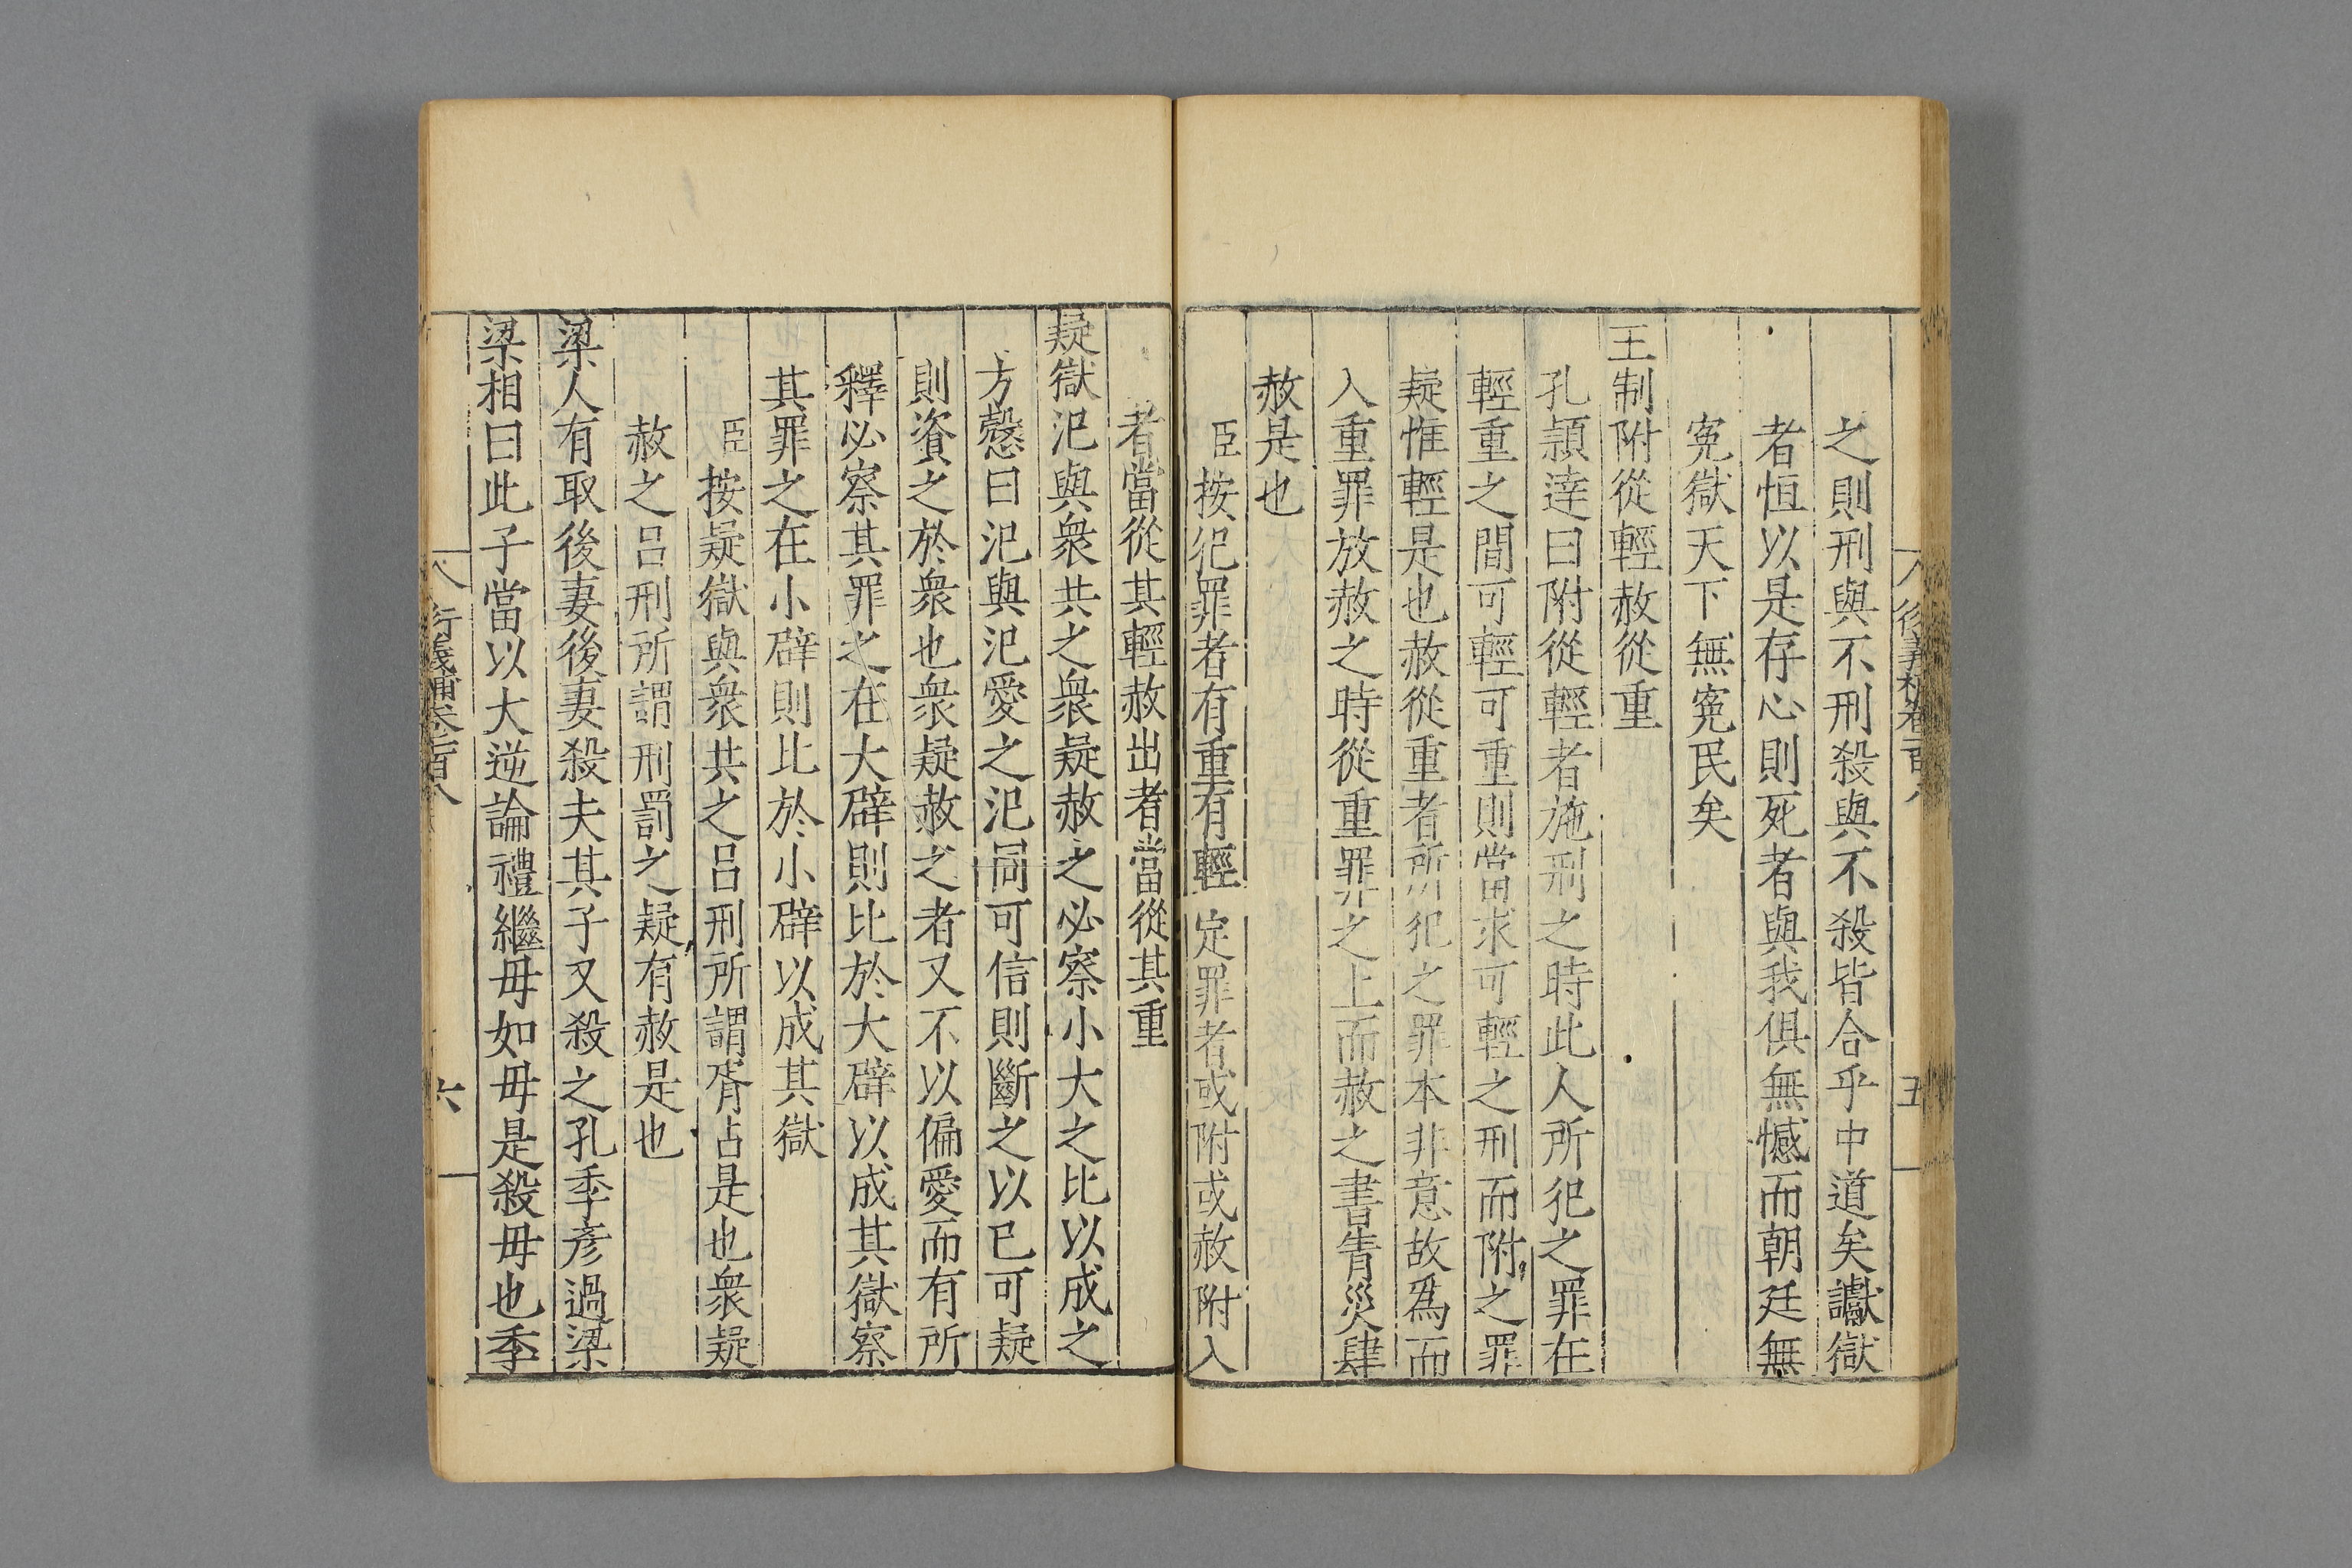 之則刑與不刑殺與不殺皆合乎中道矣讞獄
者恒以是存心則死者與我俱無憾而朝廷無
冤獄天下無冤民矣
王制附從輕赦從重
孔頴逹曰附從輕者施刑之時此人所犯之罪在
輕重之間可輕可重則當求可輕之刑而附之罪
疑惟輕是也赦從重者所犯之罪本非意故爲而
入重罪放赦之時從重罪之上而赦之書眚災肆
赦是也
臣按犯罪者有重有輕定罪者或附或赦附入
者當從其輕赦出者當從其重
疑獄汜與衆共之衆疑赦之必察小大之比以成之
方慤曰汜與汜愛之汜同可信則斷之以已可疑
則資之於衆也衆疑赦之者又不以偏愛而有所
釋必察其罪之在大辟則比於大辟以成其獄察
其罪之在小辟則比於小辟以成其獄
臣按疑獄與衆共之吕刑所謂胥占是也衆疑
赦之吕刑所謂刑罰之疑有赦是也
梁人有取後妻後妻殺夫其子又殺之孔季彦過梁
梁相曰此子當以大逆論禮繼毋如毋是殺毋也季
行義補卷一百八
六